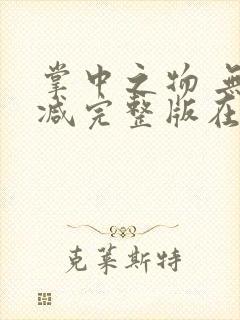 掌中之物 無
减完整版在
克莱斯特